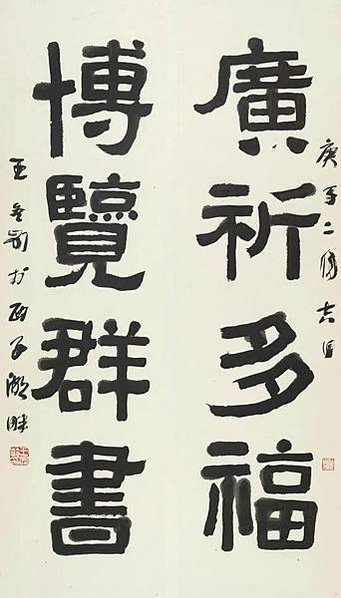 庚 二月吉日
廣祈多福
博覽群書
王冬齡於西子湖畔